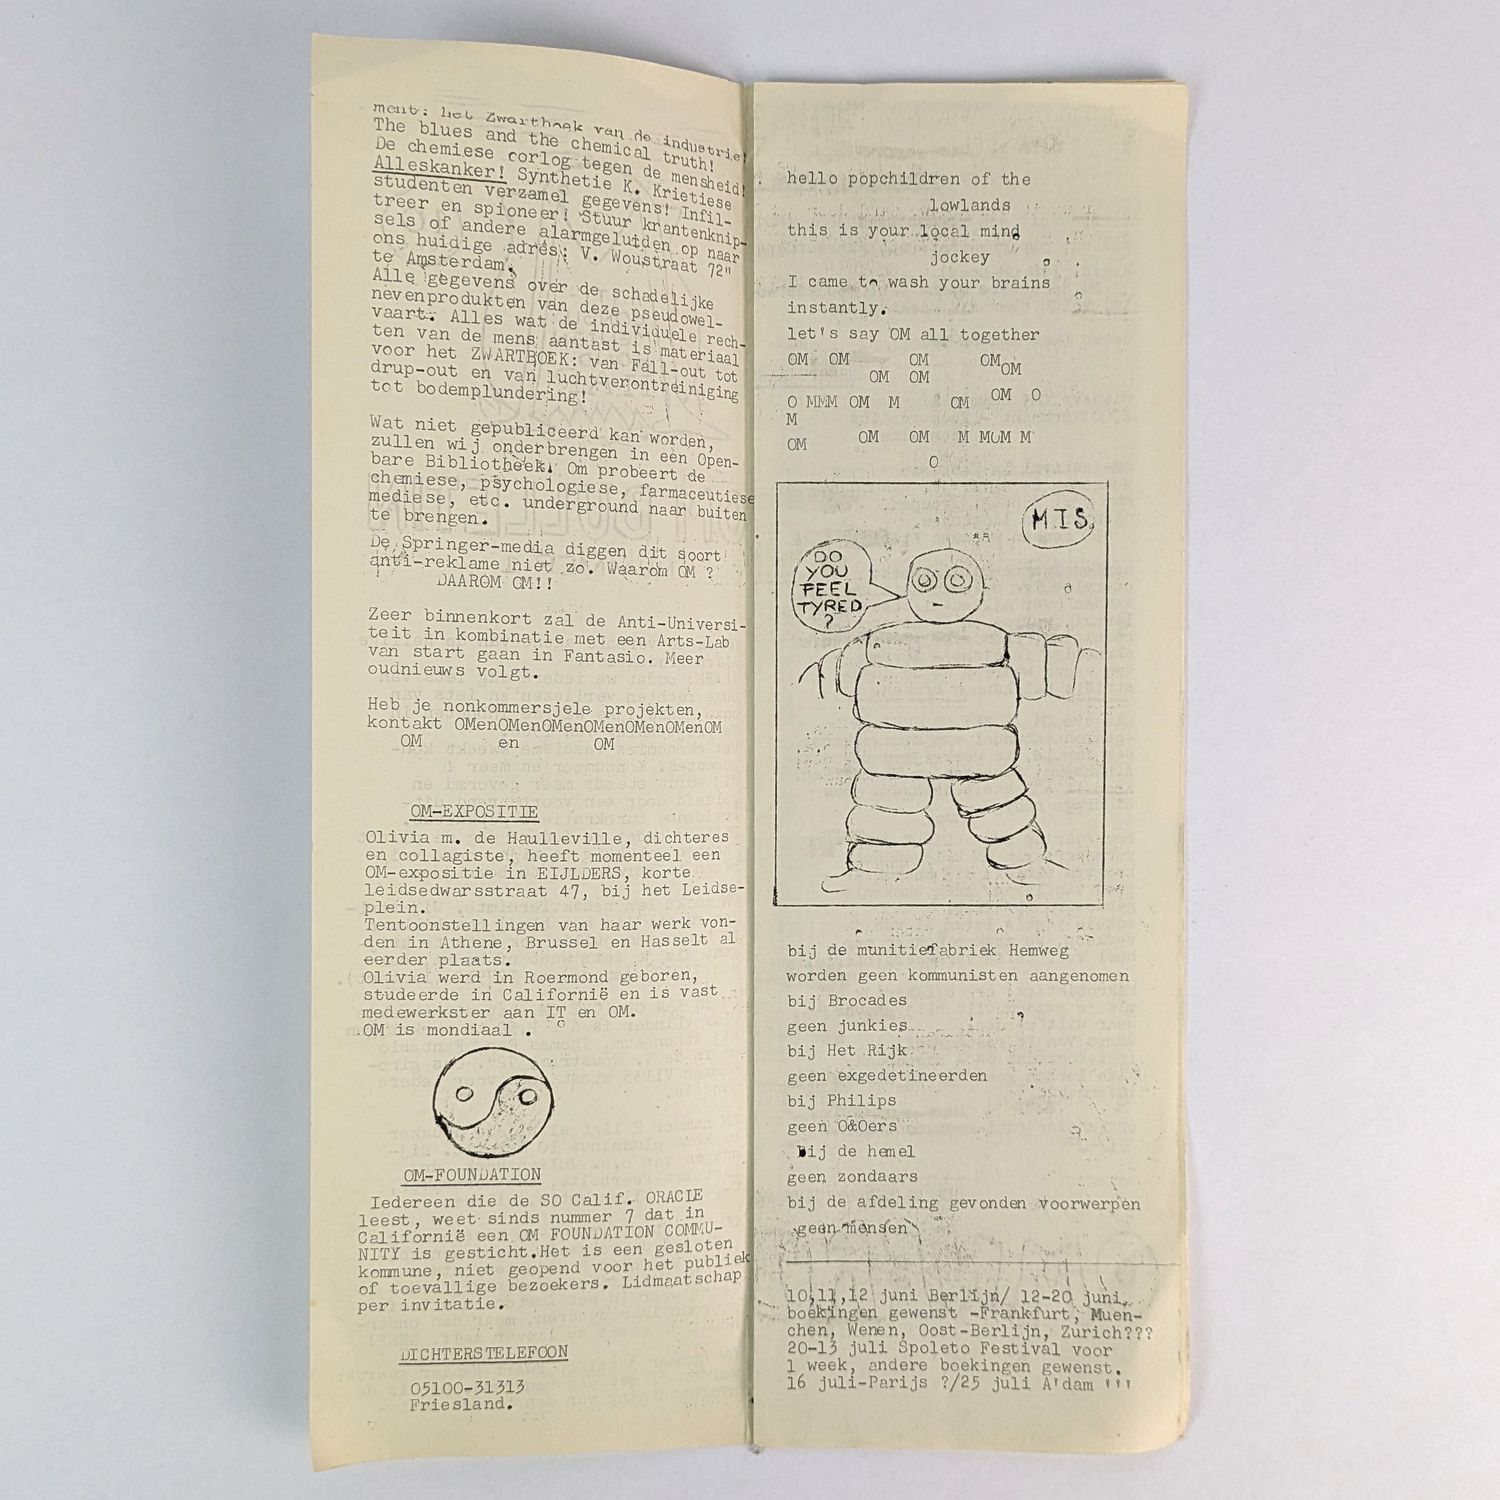 ment: het Zwartboek van de industrie!
The blues and the chemical truth!
De chemiese oorlog tegen de mensheid!
Alleskanker! Synthetie K. Krietiese
studenten verzamel gegevens! Infil-
treer en spioneer! Stuur krantenknip-
sels of andere alarmgeluiden op naar
ons huidige adres: V. Woustraat 72"
te Amsterdam.
Alle gegevens over de schadelijke
nevenprodukten van deze pseudowel-
vaart. Alles wat de individuele rech-
ten van de mens aantast is materiaal
voor het ZWARTBOEK: van Fall-out tot
drup-out en van luchtverontreiniging
tot bodemplundering!
Wat niet gepubliceerd kan worden,
zullen wij onderbrengen in een Open-
bare Bibliotheek. Om probeert de
chemiese, psychologiese, farmaceutiese
mediese, etc. underground naar buiten
te brengen.
De Springer-media diggen dit soort
anti-reklame niet zo. Waarom OM ?
DAAROM OM!!
Zeer binnenkort zal de Anti-Universi-
teit in kombinatie met een Arts-Lab
van start gaan in Fantasio. Meer
oudnieuws volgt.
Heb je nonkommersjele projekten,
kontakt OMenOMenOMenOMenOMenOMenOM
OM en OM
OM-EXPOSITIE
Olivia m. de Haulleville, dichteres
en collagiste, heeft momenteel een
OM-expositie in EIJLDERS, korte
leidsedwarsstraat 47, bij het Leidse-
plein.
Tentoonstellingen van haar werk von-
den in Athene, Brussel en Hasselt al
eerder plaats.
Olivia werd in Roermond geboren,
studeerde in Californië en is vast
medewerkster aan IT en OM.
OM is mondiaal .
OM-FOUNDATION
Iedereen die de SO Calif. ORACLE
leest, weet sinds nummer 7 dat in
Californië een OM FOUNDATION COMMU-
NITY is gesticht.Het is een gesloten
kommune, niet geopend voor het publiek
of toevallige bezoekers. Lidmaatschap
per invitatie.
DICHTERSTELEFOON
05100-31313
Friesland.
hello popchildren of the
lowlands
this is your local mind
jockey
I came to wash your brains
instantly.
let's say OM all together
OM OM OM OM OM
OM OM
O MMM OM M OM OM O
M
OM OM OM M MOM M
O
MIS
DO
YOU
FEEL
TYRED
?
bij de munitiefabriek Hemweg
worden geen kommunisten aangenomen
bij Brocades
geen junkies
bij Het Rijk
geen exgedetineerden
bij Philips
geen O&Oers
Bij de hemel
geen zondaars
bij de afdeling gevonden voorwerpen
geen mensen
10,11,12 juni Berlijn/ 12-20 juni
boekingen gewenst -Frankfurt, Muen-
chen, Wenen, Oost-Berlijn, Zurich???
20-13 juli Spoleto Festival voor
1 week, andere boekingen gewenst.
16 juli-Parijs ?/25 juli A'dam '''